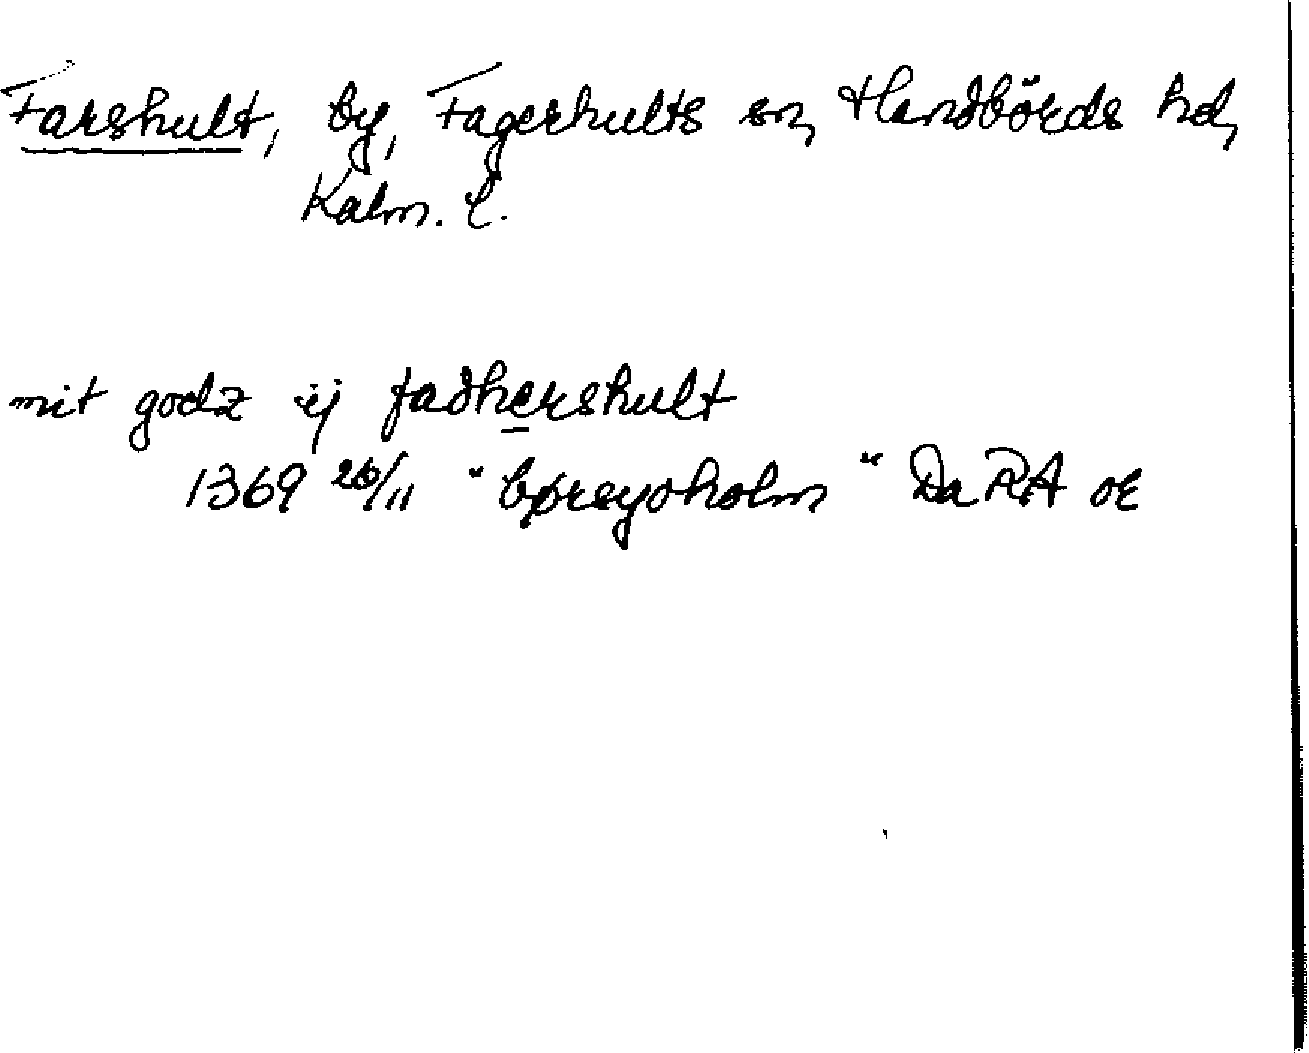 Farshult, by, Fagerhults sn, Handbörds hd,
Kalm. l.
mit godz ij fadhershult
1369 26/11 "børsyoholm" DaRA or